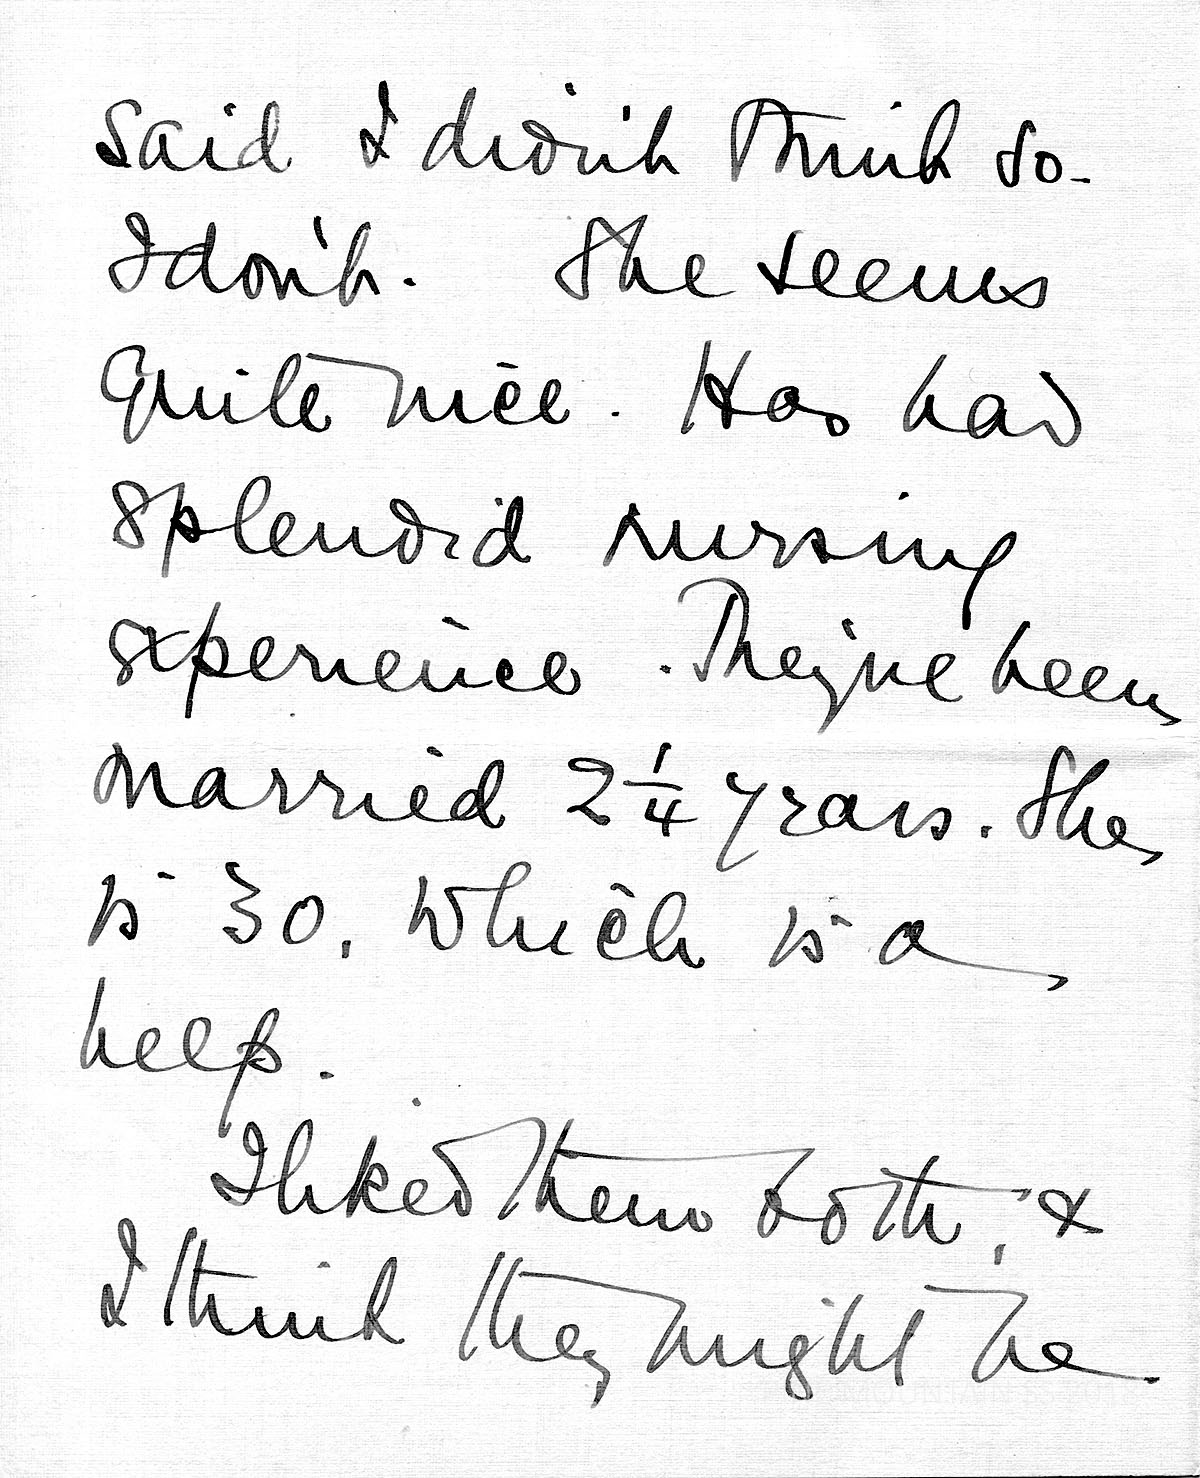 said I didn't think so -
I don't. She seems
quite nice. Has had
splendid nursing
experience. They've been
married 2 1/4 years. She
is 30, which is a
help.
I liked them both, &
I think they might be